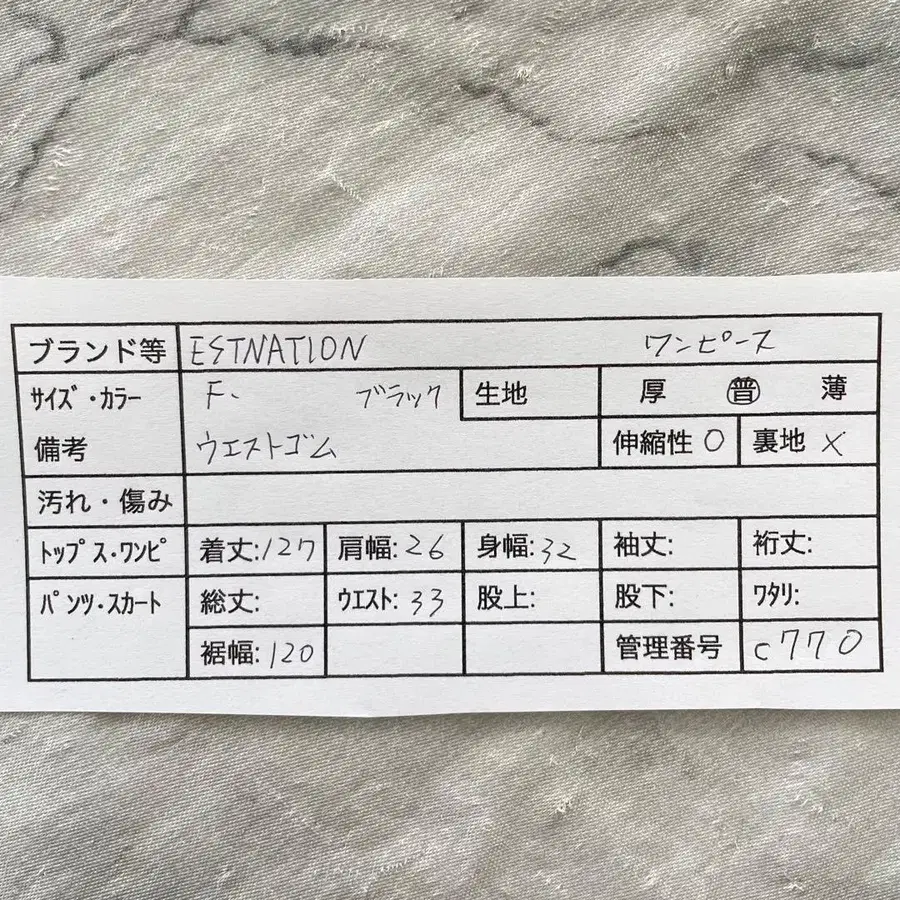 ブランド等 ESTNATION ワンピース
サイズ・カラー F. ブラック 生地 厚 普 薄
備考 ウエストゴム 伸縮性 ○ 裏地 ×
汚れ・傷み
トップス・ワンピ 着丈:127 肩幅:26 身幅:32 袖丈: 裄丈:
パンツ・スカート 総丈: ウエスト:33 股上: 股下: ワタリ:
裾幅:120 管理番号 c770